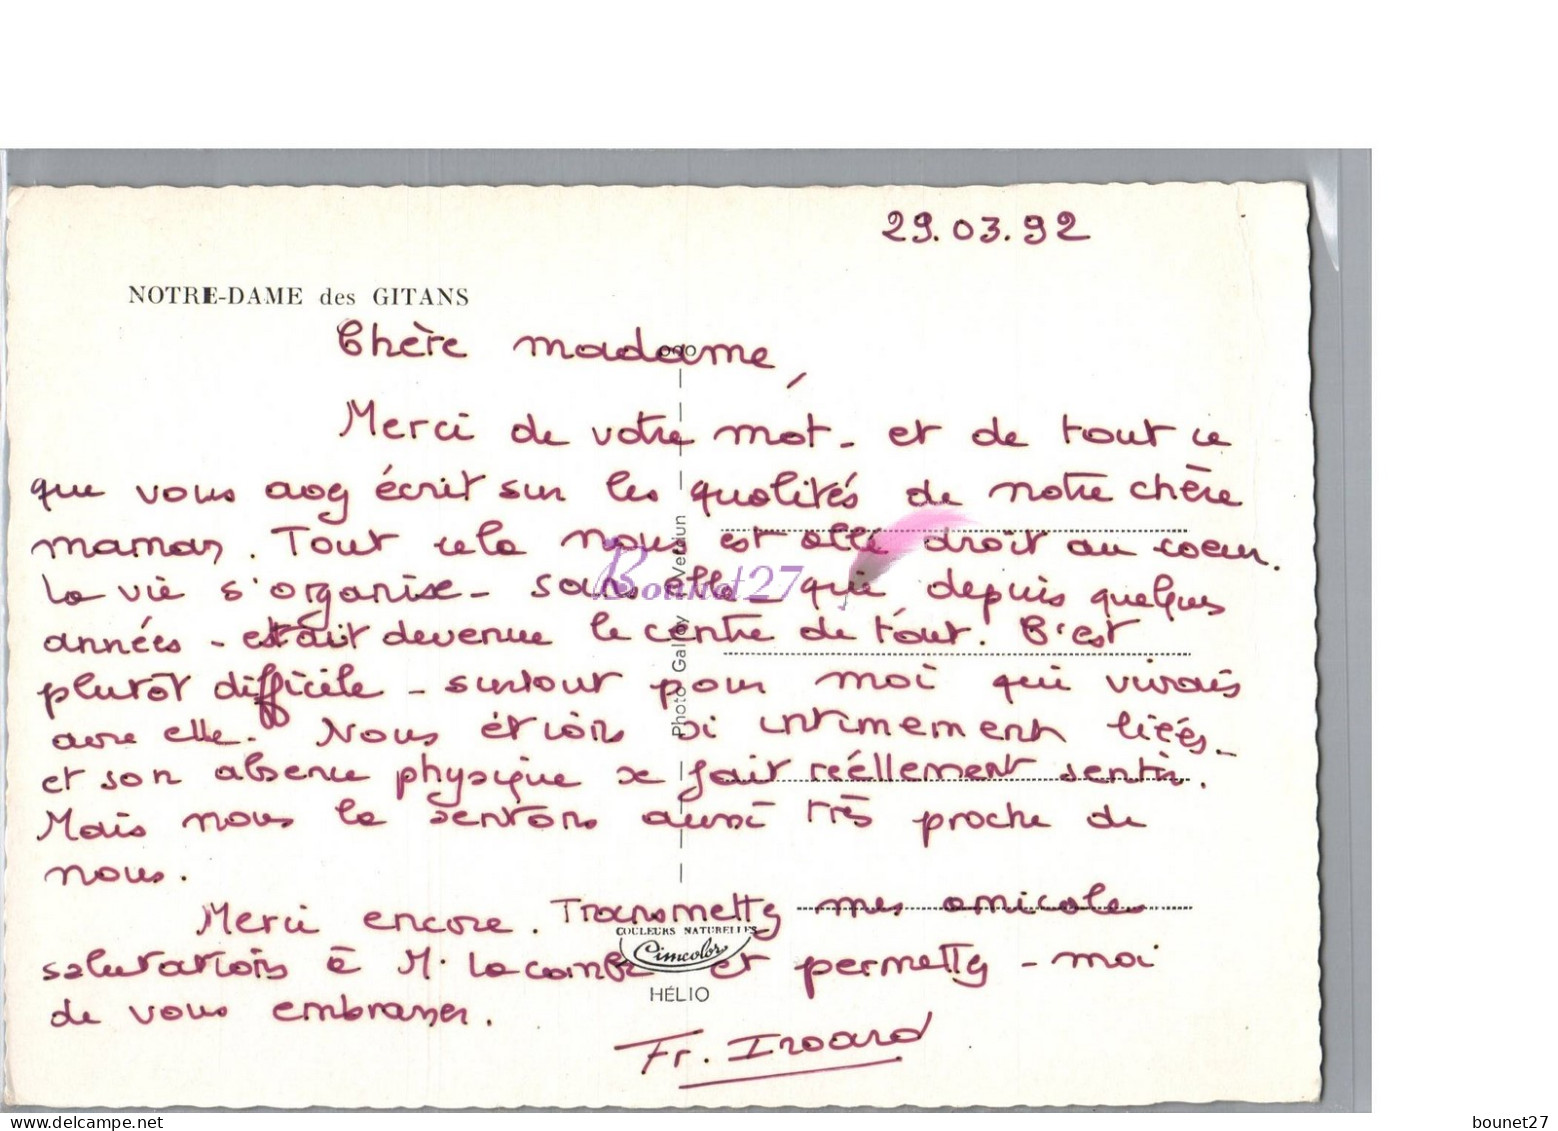 29.03.92
NOTRE-DAME des GITANS
Chère madame,
Merci de votre mot - et de tout ce
que vous avez écrit sur les qualités de notre chère
maman. Tout cela nous est allé droit au coeur.
La vie s'organise - sans elle - qui depuis quelques
années - était devenue le centre de tout. C'est
plutôt difficile - surtout pour moi qui vivais
avec elle. Nous étions si intimement liées -
et son absence physique se fait réellement sentir.
Mais nous la sentons aussi très proche de
nous.
Merci encore. Transmettez mes amicales
salutations à M. Lacombe et permettez-moi
de vous embrasser.
Fr. Isoard
Photo Galloy Verdun
COULEURS NATURELLES
Cimcolor
HÉLIO
Bounet27
bounet27